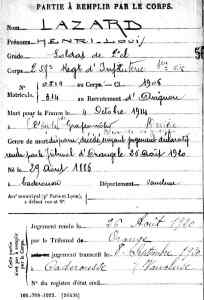 PARTIE À REMPLIR PAR LE CORPS.
Nom LAZARD
Prénoms HENRI-LOUIS
Grade Soldat de 2e cl
Corps
N° 0819 au Corps. — Cl. 1906
Matricule. 814 au Recrutement d'Avignon
Mort pour la France le 4 Octobre 1914
à
Genre de mort disparu, décédé suivant jugement déclaratif
rendu par le Tribunal d'Orange le 26 août 1920
Né le 29 avril 1886
à Caderousse Département Vaucluse
Jugement rendu le 26 Août 1920
par le Tribunal de Orange
jugement transcrit le 8 Septembre 1920
à Caderousse Vaucluse
N° du registre d'état civil